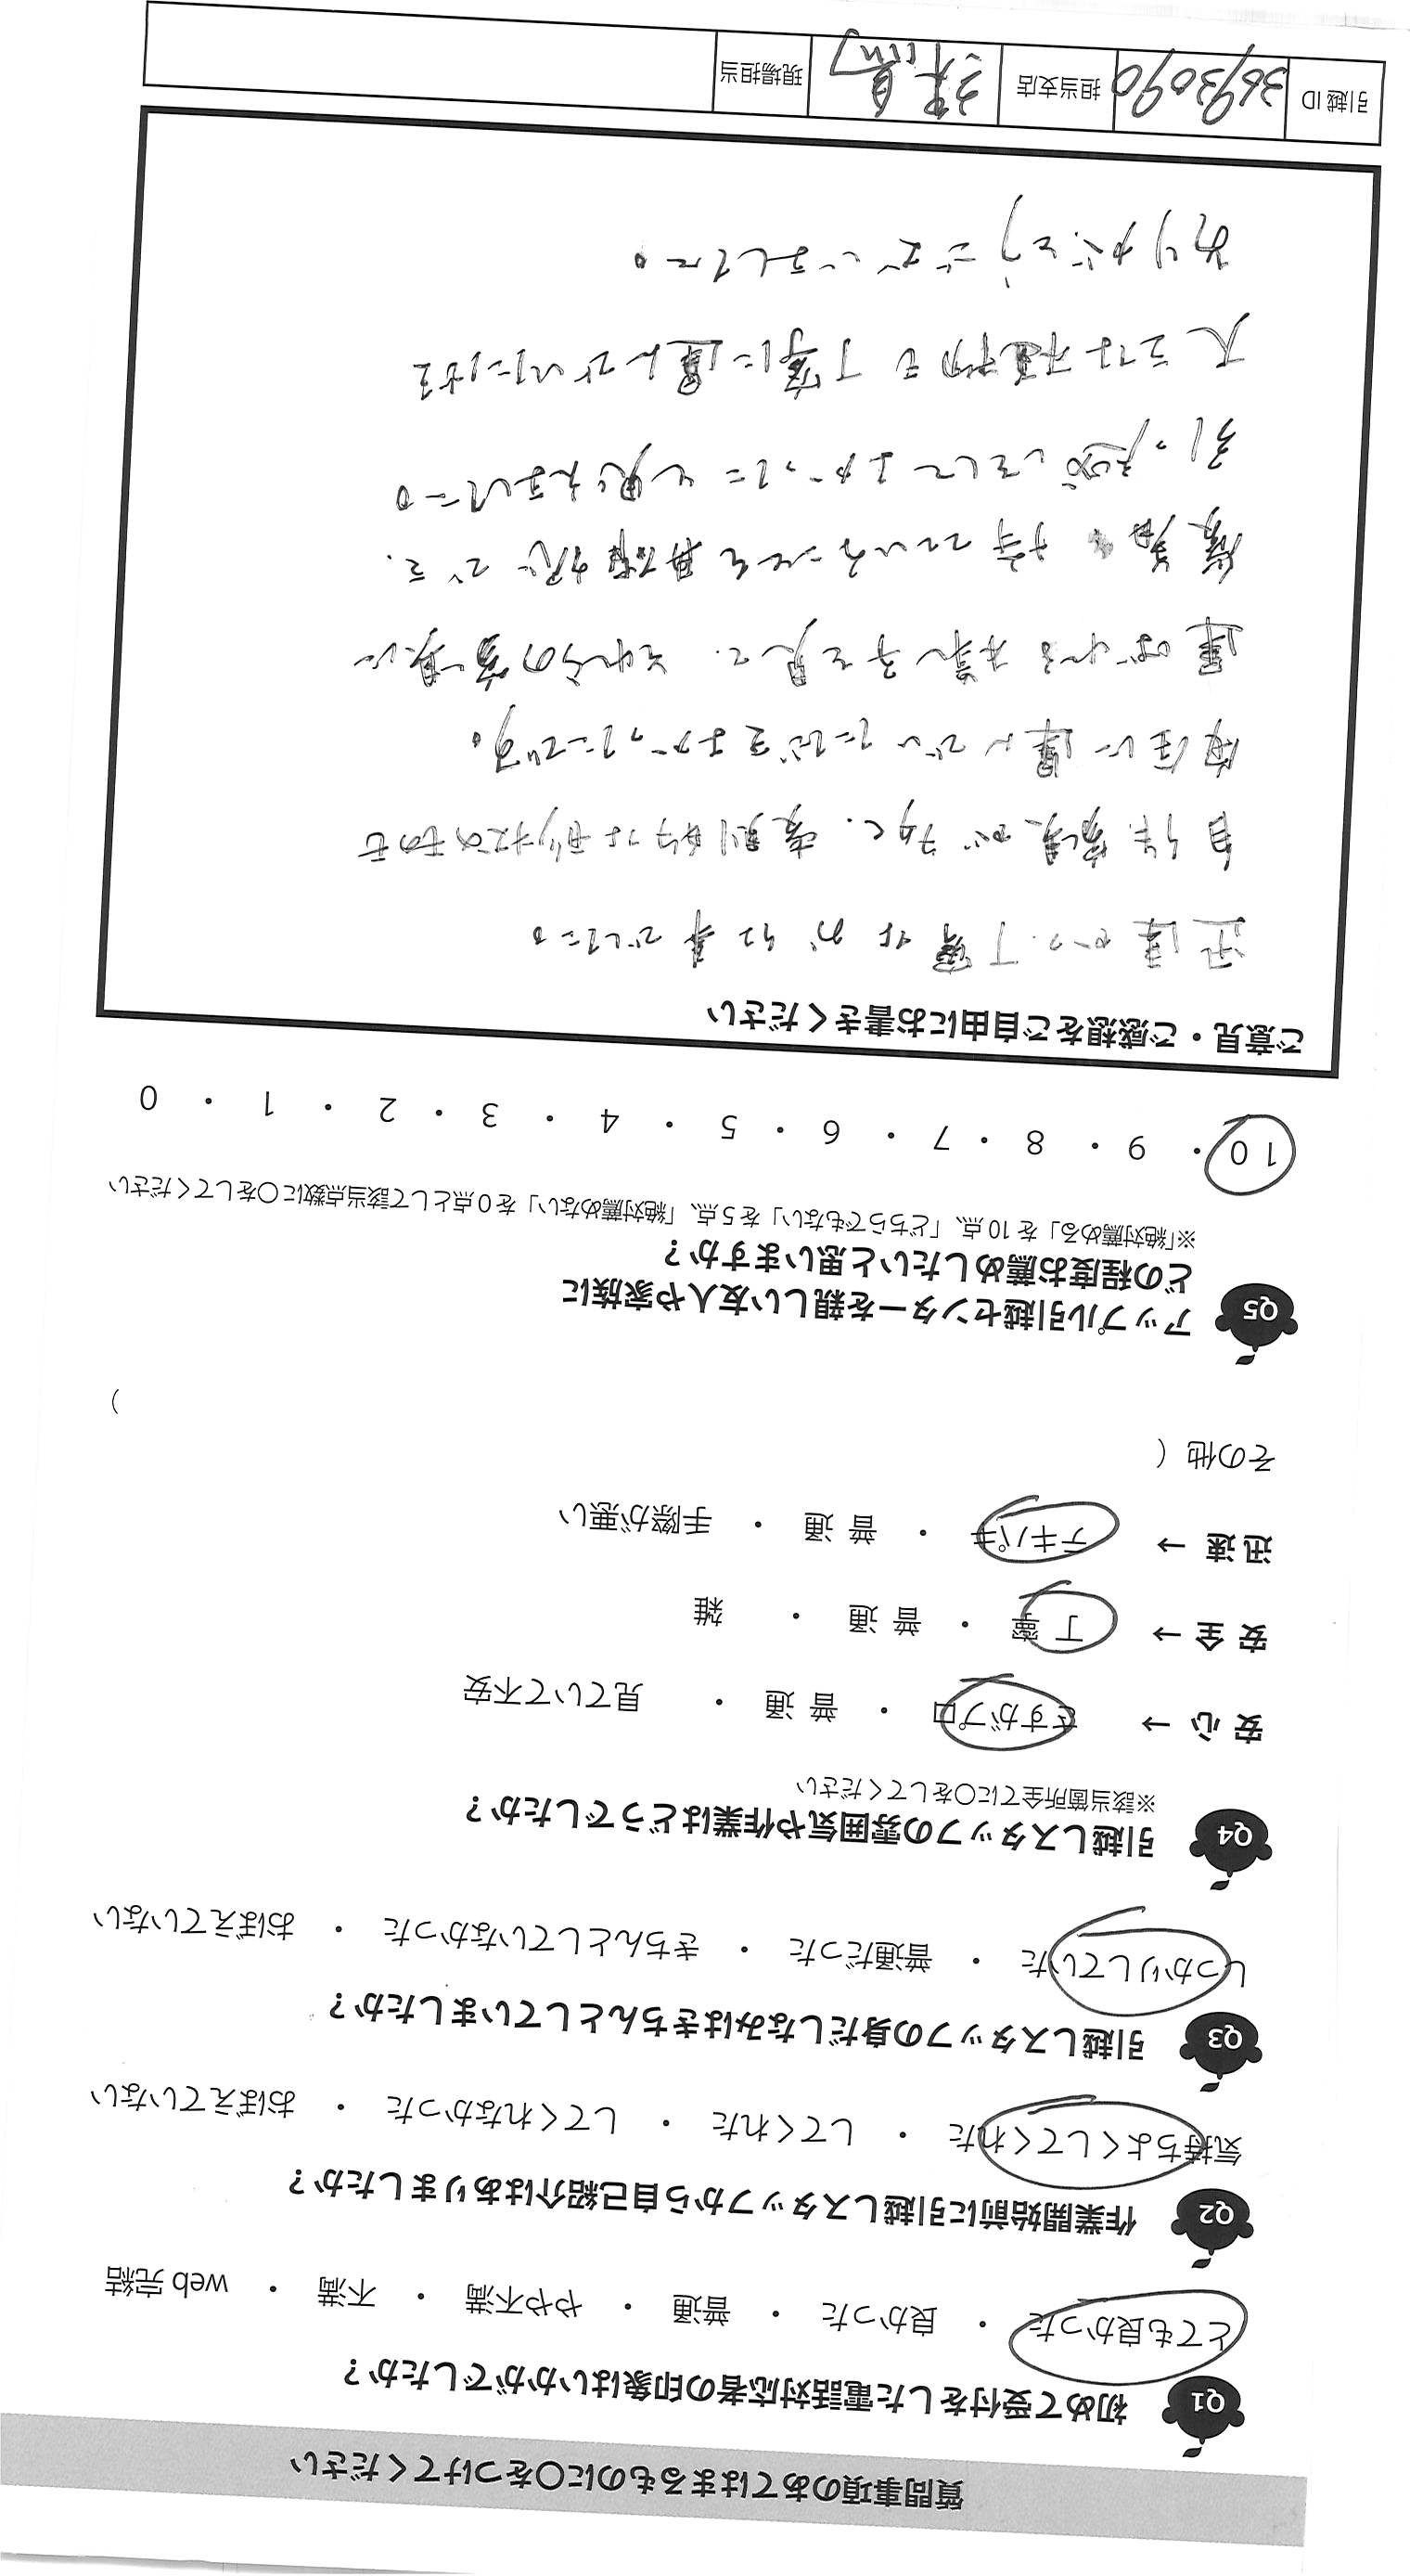 質問事項のあてはまるものに〇をつけてください
Q1 初めて受付をした電話対応者の印象はいかがでしたか？
とても良かった ・ 良かった ・ 普通 ・ やや不満 ・ 不満 ・ web 完結
Q2 作業開始前に引越しスタッフから自己紹介はありましたか？
気持ちよくしてくれた ・ してくれた ・ してくれなかった ・ おぼえていない
Q3 引越しスタッフの身だしなみはきちんとしていましたか？
しっかりしていた ・ 普通だった ・ きちんとしていなかった ・ おぼえていない
Q4 引越しスタッフの雰囲気や作業はどうでしたか？
※該当箇所全てに〇をしてください
安心 → さすがプロ ・ 普通 ・ 見ていて不安
安全 → 丁寧 ・ 普通 ・ 雑
迅速 → テキパキ ・ 普通 ・ 手際が悪い
その他（ ）
Q5 アップル引越センターを親しい友人や家族に
どの程度お薦めしたいと思いますか？
※「絶対薦める」を 10 点、「どちらでもない」を 5 点、「絶対薦めない」を 0 点として該当点数に〇をしてください
10 ・ 9 ・ 8 ・ 7 ・ 6 ・ 5 ・ 4 ・ 3 ・ 2 ・ 1 ・ 0
ご意見・ご感想をご自由にお書きください
迅速かつ丁寧なお仕事でした。
自作家具が多く、変則的な形状のものも
安全に運んでいただきよかったです。
運ばれる様子を見て、それらの家具に
愛着を持っていることを再確認でき、
引っ越しをしてよかったと思えました。
大きな植物も丁寧に運んでいただき
ありがとうございました。
引越 ID 3693090 担当支店 練馬 現場担当